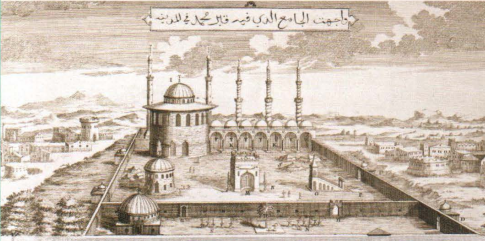 واجهت الجامع الدي فيه قبر محمد في المدينه